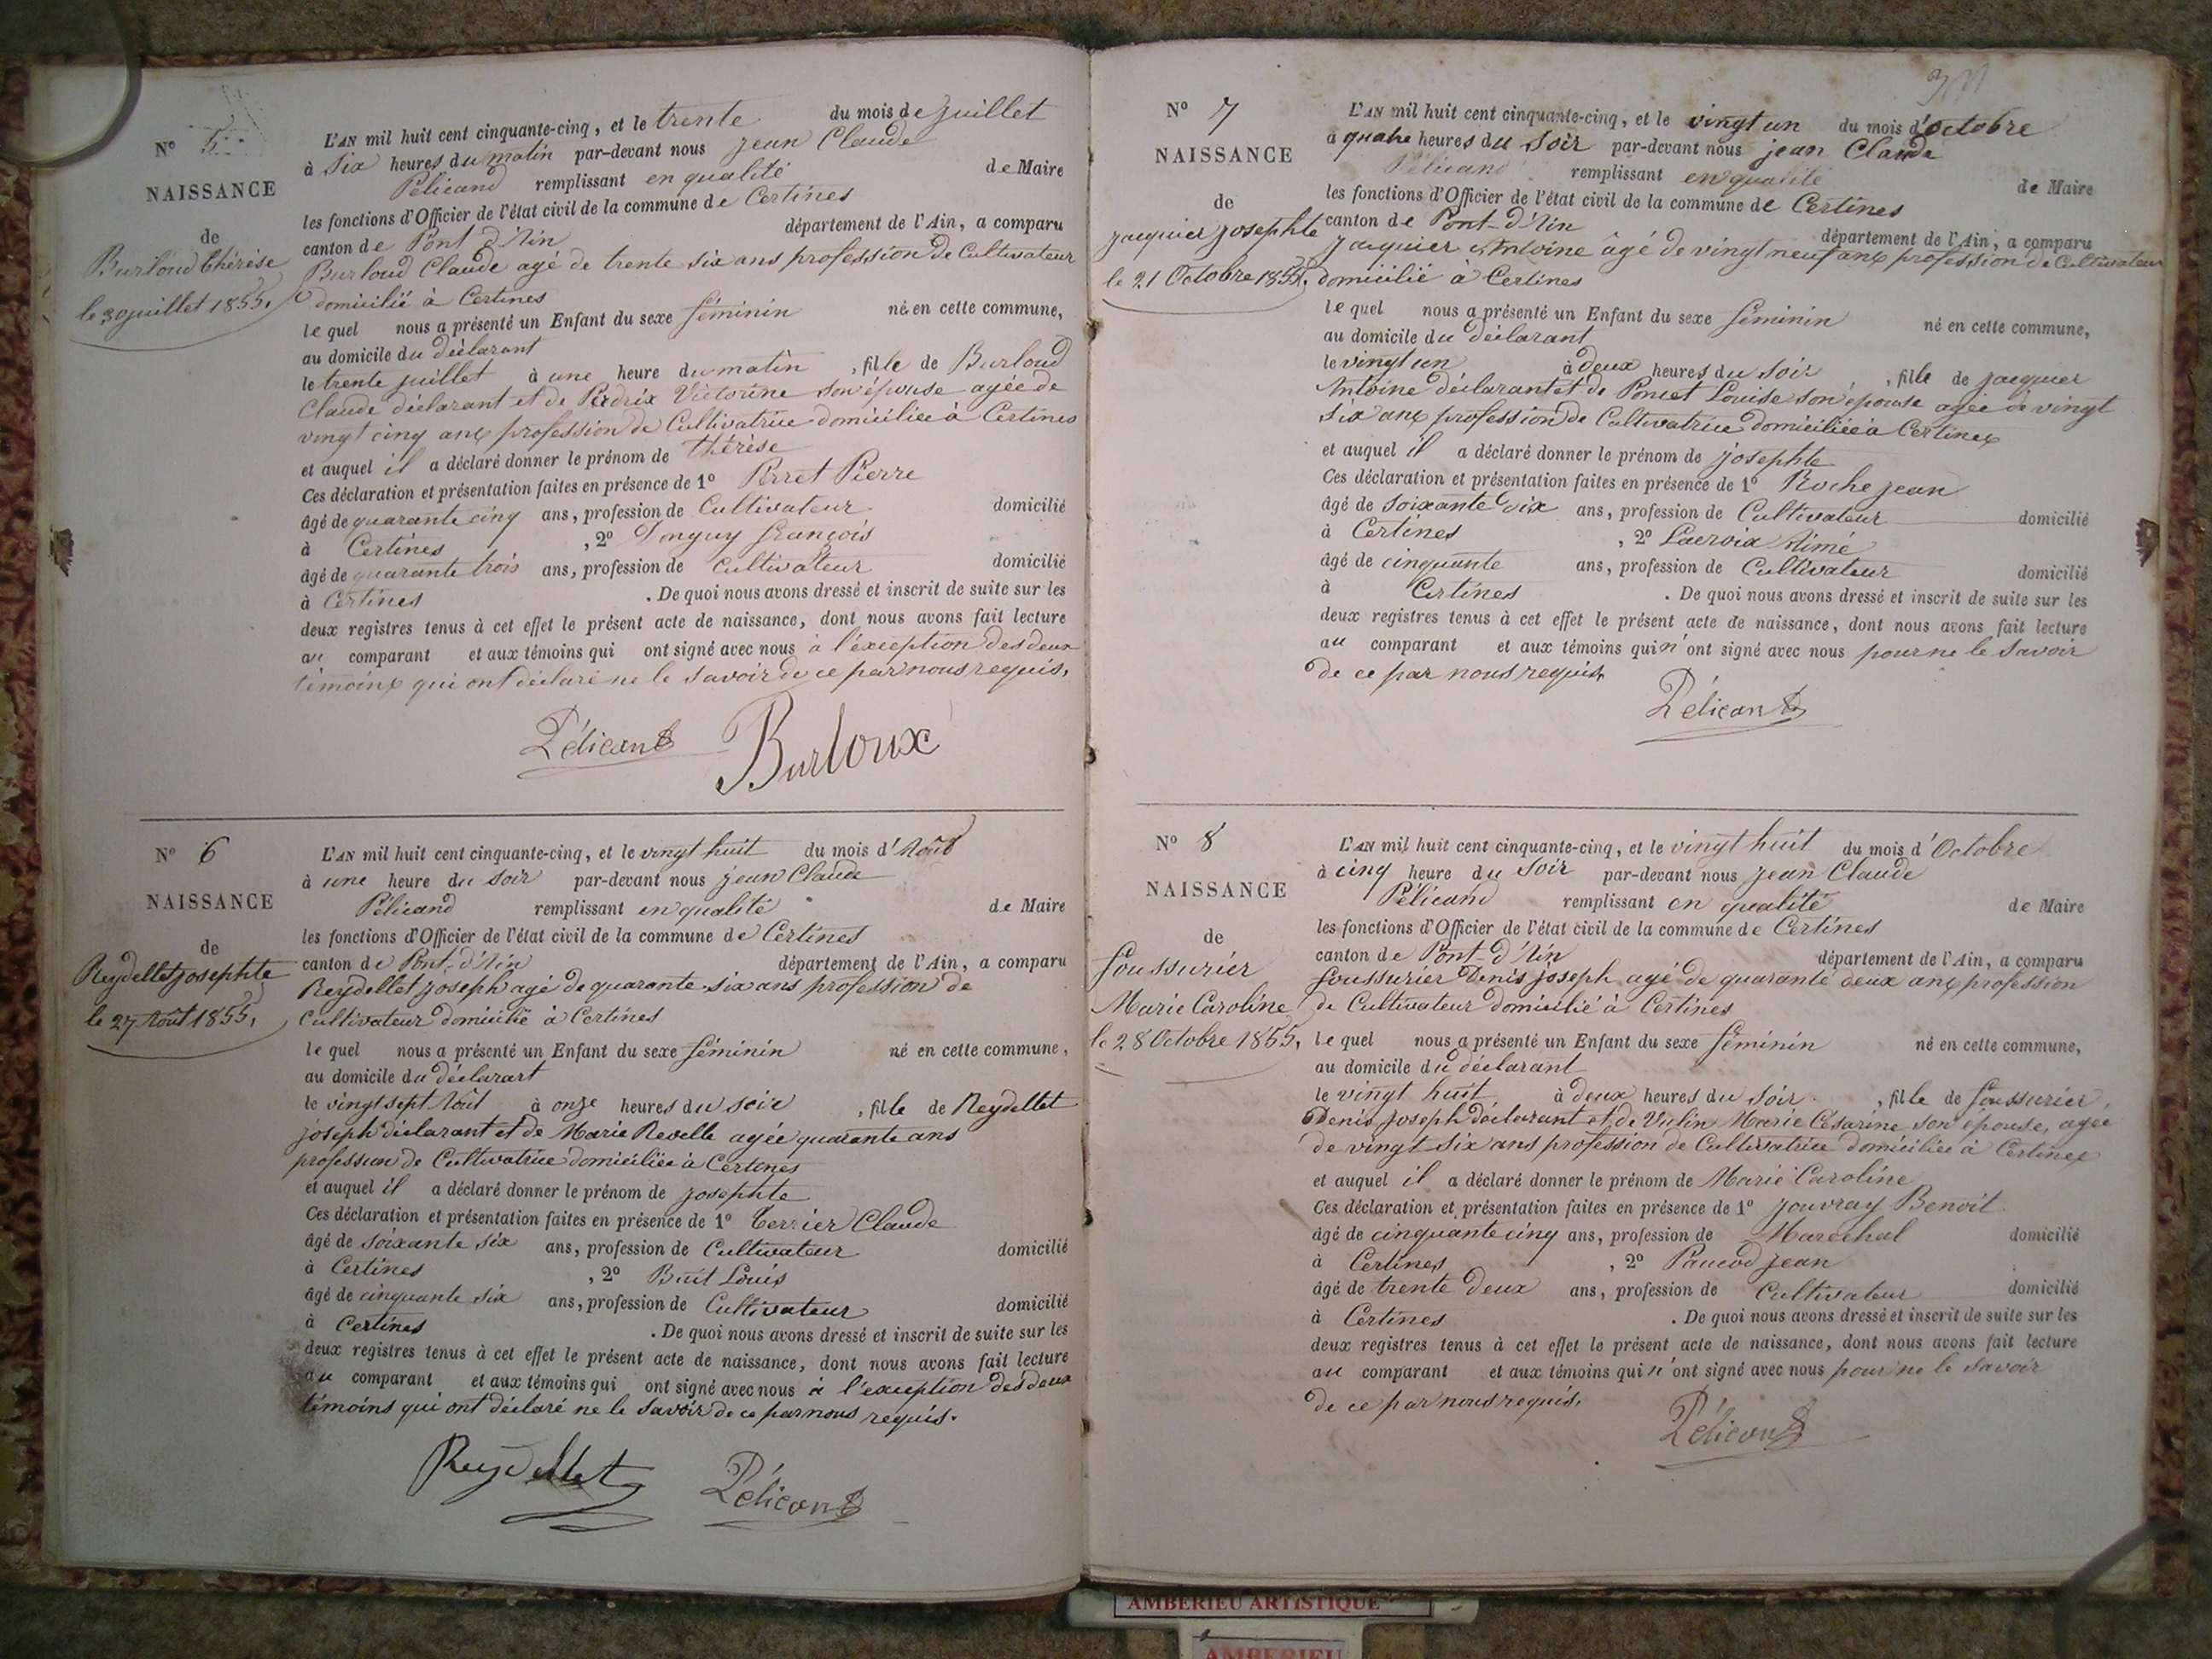 N° 5
NAISSANCE
de
Burloud thérèse
le 30 juillet 1855.
L'AN mil huit cent cinquante-cinq, et le trente du mois de juillet
à Six heures du matin par-devant nous jean Claude
Pélicand remplissant en qualité de Maire
les fonctions d'Officier de l'état civil de la commune de Certines
canton de Pont d'Ain département de l'Ain, a comparu
Burloud Claude agé de trente six ans profession de Cultivateur
domicilié à Certines
le quel nous a présenté un Enfant du sexe féminin né en cette commune,
au domicile du déclarant
le trente juillet à une heure du matin , fille de Burloud
Claude déclarant et de Perdrix Victorine son épouse agée de
vingt cinq ans profession de Cultivatrice domiciliée à Certines
et auquel il a déclaré donner le prénom de thérèse
Ces déclaration et présentation faites en présence de 1° Perret Pierre
âgé de quarante cinq ans, profession de Cultivateur domicilié
à Certines , 2° françois
âgé de quarante trois ans, profession de Cultivateur domicilié
à Certines . De quoi nous avons dressé et inscrit de suite sur les
deux registres tenus à cet effet le présent acte de naissance, dont nous avons fait lecture
au comparant et aux témoins qui ont signé avec nous à l'exception des deux
témoins qui ont déclaré ne le Savoir de ce par nous requis.
Pélicand Burloux
N° 6
NAISSANCE
de
Reydellet josephte
le 27 Août 1855,
L'AN mil huit cent cinquante-cinq, et le vingt huit du mois d'Août
à une heure du Soir par-devant nous jean Claude
Pélicand remplissant en qualité de Maire
les fonctions d'Officier de l'état civil de la commune de Certines
canton de Pont-d'Ain département de l'Ain, a comparu
Reydellet joseph agé de quarante-six ans profession de
Cultivateur domicilié à Certines
le quel nous a présenté un Enfant du sexe féminin né en cette commune,
au domicile du déclarant
le vingt sept Août à onze heures du Soir , fille de Reydellet
joseph déclarant et de Marie Revelle agée quarante ans
profession de Cultivatrice domiciliée à Certines
et auquel il a déclaré donner le prénom de josephte
Ces déclaration et présentation faites en présence de 1° terrier Claude
âgé de soixante six ans, profession de Cultivateur domicilié
à Certines , 2° Louis
âgé de cinquante six ans, profession de Cultivateur domicilié
à Certines . De quoi nous avons dressé et inscrit de suite sur les
deux registres tenus à cet effet le présent acte de naissance, dont nous avons fait lecture
au comparant et aux témoins qui ont signé avec nous à l'exception des deux
témoins qui ont déclaré ne le Savoir de ce par nous requis.
Reydellet Pélicand
N° 7
NAISSANCE
de
jacquier josephte
le 21 Octobre 1855.
L'AN mil huit cent cinquante-cinq, et le vingt un du mois d'Octobre
à quatre heures du Soir par-devant nous jean Claude
Pélicand remplissant en qualité de Maire
les fonctions d'Officier de l'état civil de la commune de Certines
canton de Pont-d'Ain département de l'Ain, a comparu
jacquier Antoine âgé de vingt neuf ans profession de Cultivateur
domicilié à Certines
le quel nous a présenté un Enfant du sexe féminin né en cette commune,
au domicile du déclarant
le vingt un à deux heures du Soir , fille de jacquier
Antoine déclarant et de Poncet Louise son épouse agée de vingt
Six ans profession de Cultivatrice domiciliée à Certines
et auquel il a déclaré donner le prénom de josephte
Ces déclaration et présentation faites en présence de 1° Roche jean
âgé de soixante dix ans, profession de Cultivateur domicilié
à Certines , 2° Lacroix Aimé
âgé de cinquante ans, profession de Cultivateur domicilié
à Certines . De quoi nous avons dressé et inscrit de suite sur les
deux registres tenus à cet effet le présent acte de naissance, dont nous avons fait lecture
au comparant et aux témoins qui n'ont signé avec nous pour ne le Savoir
de ce par nous requis
Pélicand
N° 8
NAISSANCE
de
foussurier
Marie Caroline
le 28 Octobre 1855,
L'AN mil huit cent cinquante-cinq, et le vingt huit du mois d'Octobre
à cinq heure du Soir par-devant nous jean Claude
Pélicand remplissant en qualité de Maire
les fonctions d'Officier de l'état civil de la commune de Certines
canton de Pont-d'Ain département de l'Ain, a comparu
foussurier Denis joseph agé de quarante deux ans profession
de Cultivateur domicilié à Certines
le quel nous a présenté un Enfant du sexe féminin né en cette commune,
au domicile du déclarant
le vingt huit à deux heures du Soir , fille de foussurier
Denis joseph déclarant et de Vulin Marie Césarine son épouse, agée
de vingt six ans profession de Cultivatrice domiciliée à Certines
et auquel il a déclaré donner le prénom de Marie Caroline
Ces déclaration et présentation faites en présence de 1° jouvray Benoit
âgé de cinquante cinq ans, profession de Maréchal domicilié
à Certines , 2° Paucod jean
âgé de trente deux ans, profession de Cultivateur domicilié
à Certines . De quoi nous avons dressé et inscrit de suite sur les
deux registres tenus à cet effet le présent acte de naissance, dont nous avons fait lecture
au comparant et aux témoins qui n'ont signé avec nous pour ne le Savoir
de ce par nous requis.
Pélicand
AMBERIEU ARTISTIQUE
AMBERIEU